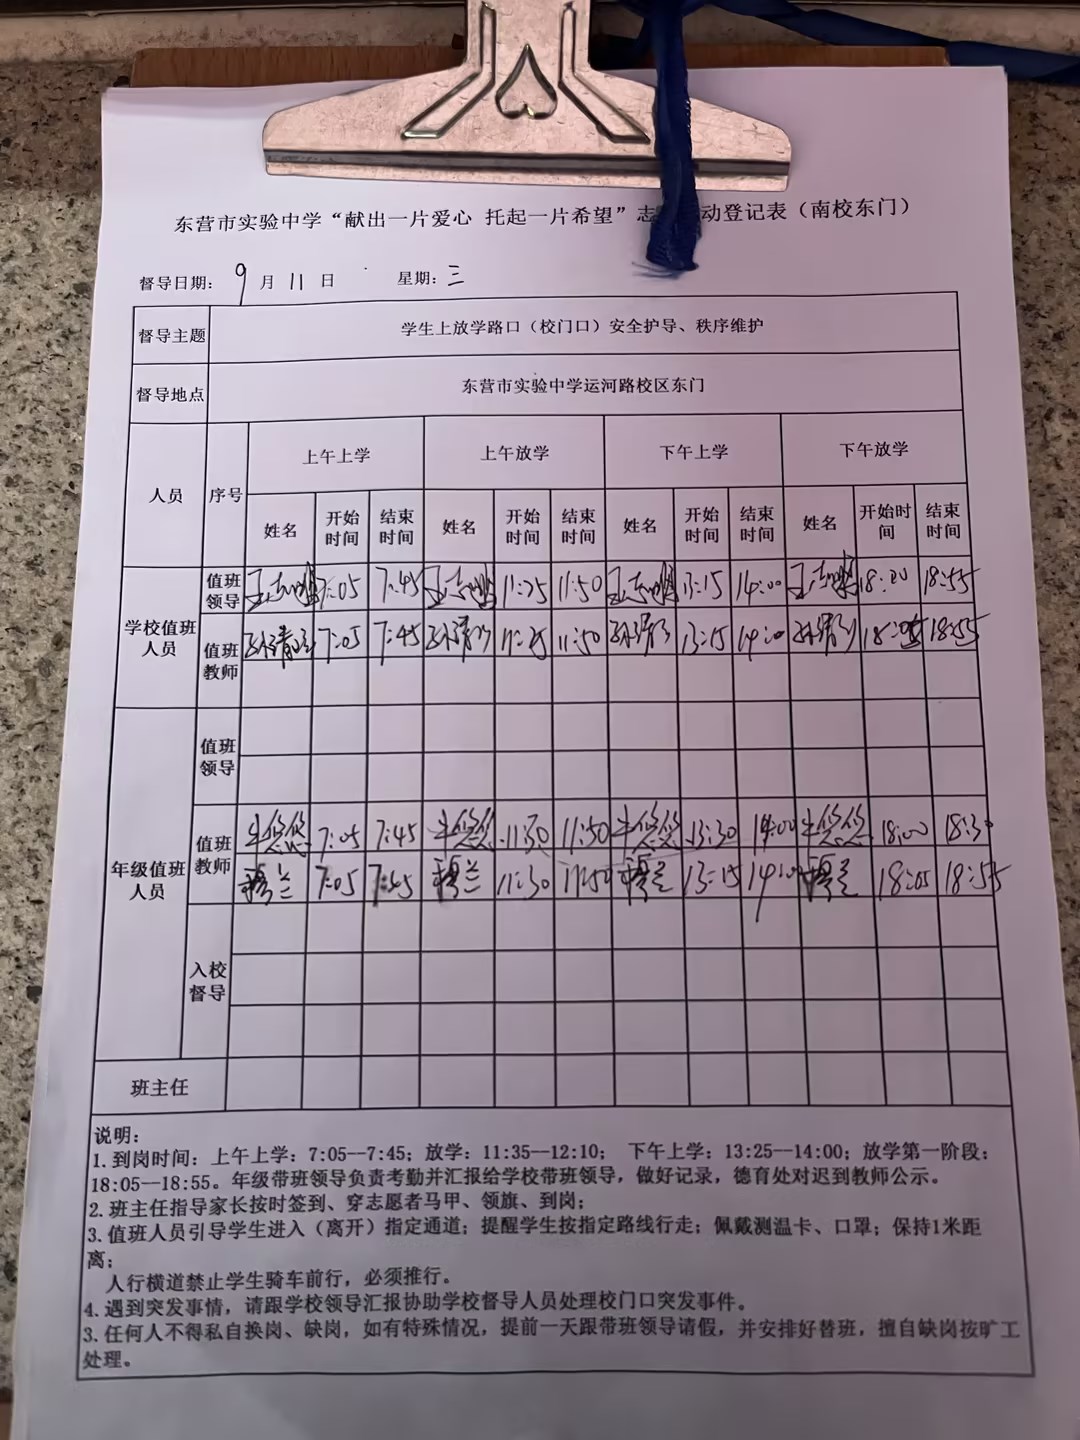 东营市实验中学“献出一片爱心 托起一片希望”志 动登记表（南校东门）
督导日期： 9 月 11 日 星期：三
督导主题 学生上放学路口（校门口）安全护导、秩序维护
督导地点 东营市实验中学运河路校区东门
人员 序号 上午上学 上午放学 下午上学 下午放学
姓名 开始时间 结束时间 姓名 开始时间 结束时间 姓名 开始时间 结束时间 姓名 开始时间 结束时间
学校值班人员
值班领导 7:05 7:45 11:25 11:50 13:15 14:00 18:55
值班教师 7:05 7:45 11:50 13:15 14:00 18:55
年级值班人员
值班领导
值班教师 牛悠悠 7:05 7:45 牛悠悠 11:30 11:50 牛悠悠 13:30 14:00 牛悠悠 18:00 18:30
穆兰 7:05 7:45 穆兰 11:30 11:50 穆兰 13:15 14:00 穆兰 18:05 18:55
入校督导
班主任
说明：
1.到岗时间：上午上学：7:05--7:45；放学：11:35--12:10； 下午上学：13:25--14:00；放学第一阶段：
18:05--18:55。年级带班领导负责考勤并汇报给学校带班领导，做好记录，德育处对迟到教师公示。
2.班主任指导家长按时签到、穿志愿者马甲、领旗、到岗；
3.值班人员引导学生进入（离开）指定通道；提醒学生按指定路线行走；佩戴测温卡、口罩；保持1米距
离；
人行横道禁止学生骑车前行，必须推行。
4.遇到突发事情，请跟学校领导汇报协助学校督导人员处理校门口突发事件。
3.任何人不得私自换岗、缺岗，如有特殊情况，提前一天跟带班领导请假，并安排好替班，擅自缺岗按旷工
处理。